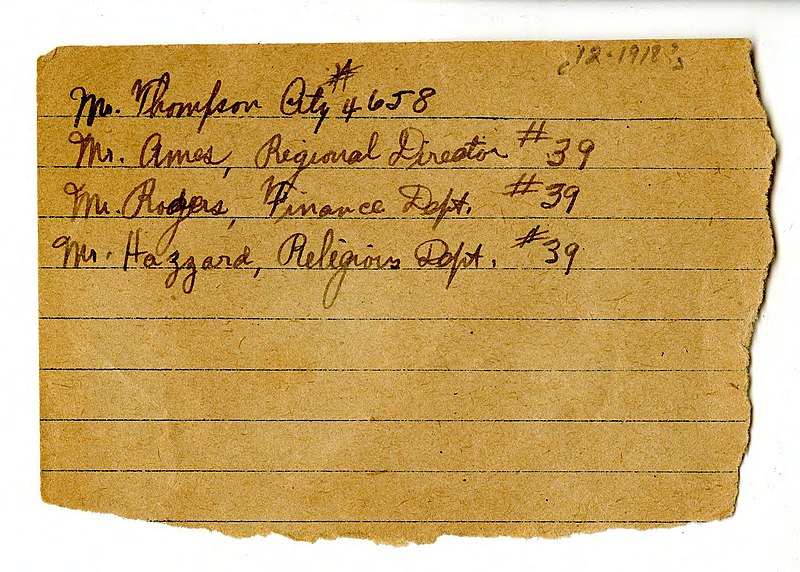 [12-1918?]
Mr. Thompson City #4658
Mr. Ames, Regional Director #39
Mr. Rogers, Finance Dept. #39
Mr. Hazzard, Religious Dept. #39